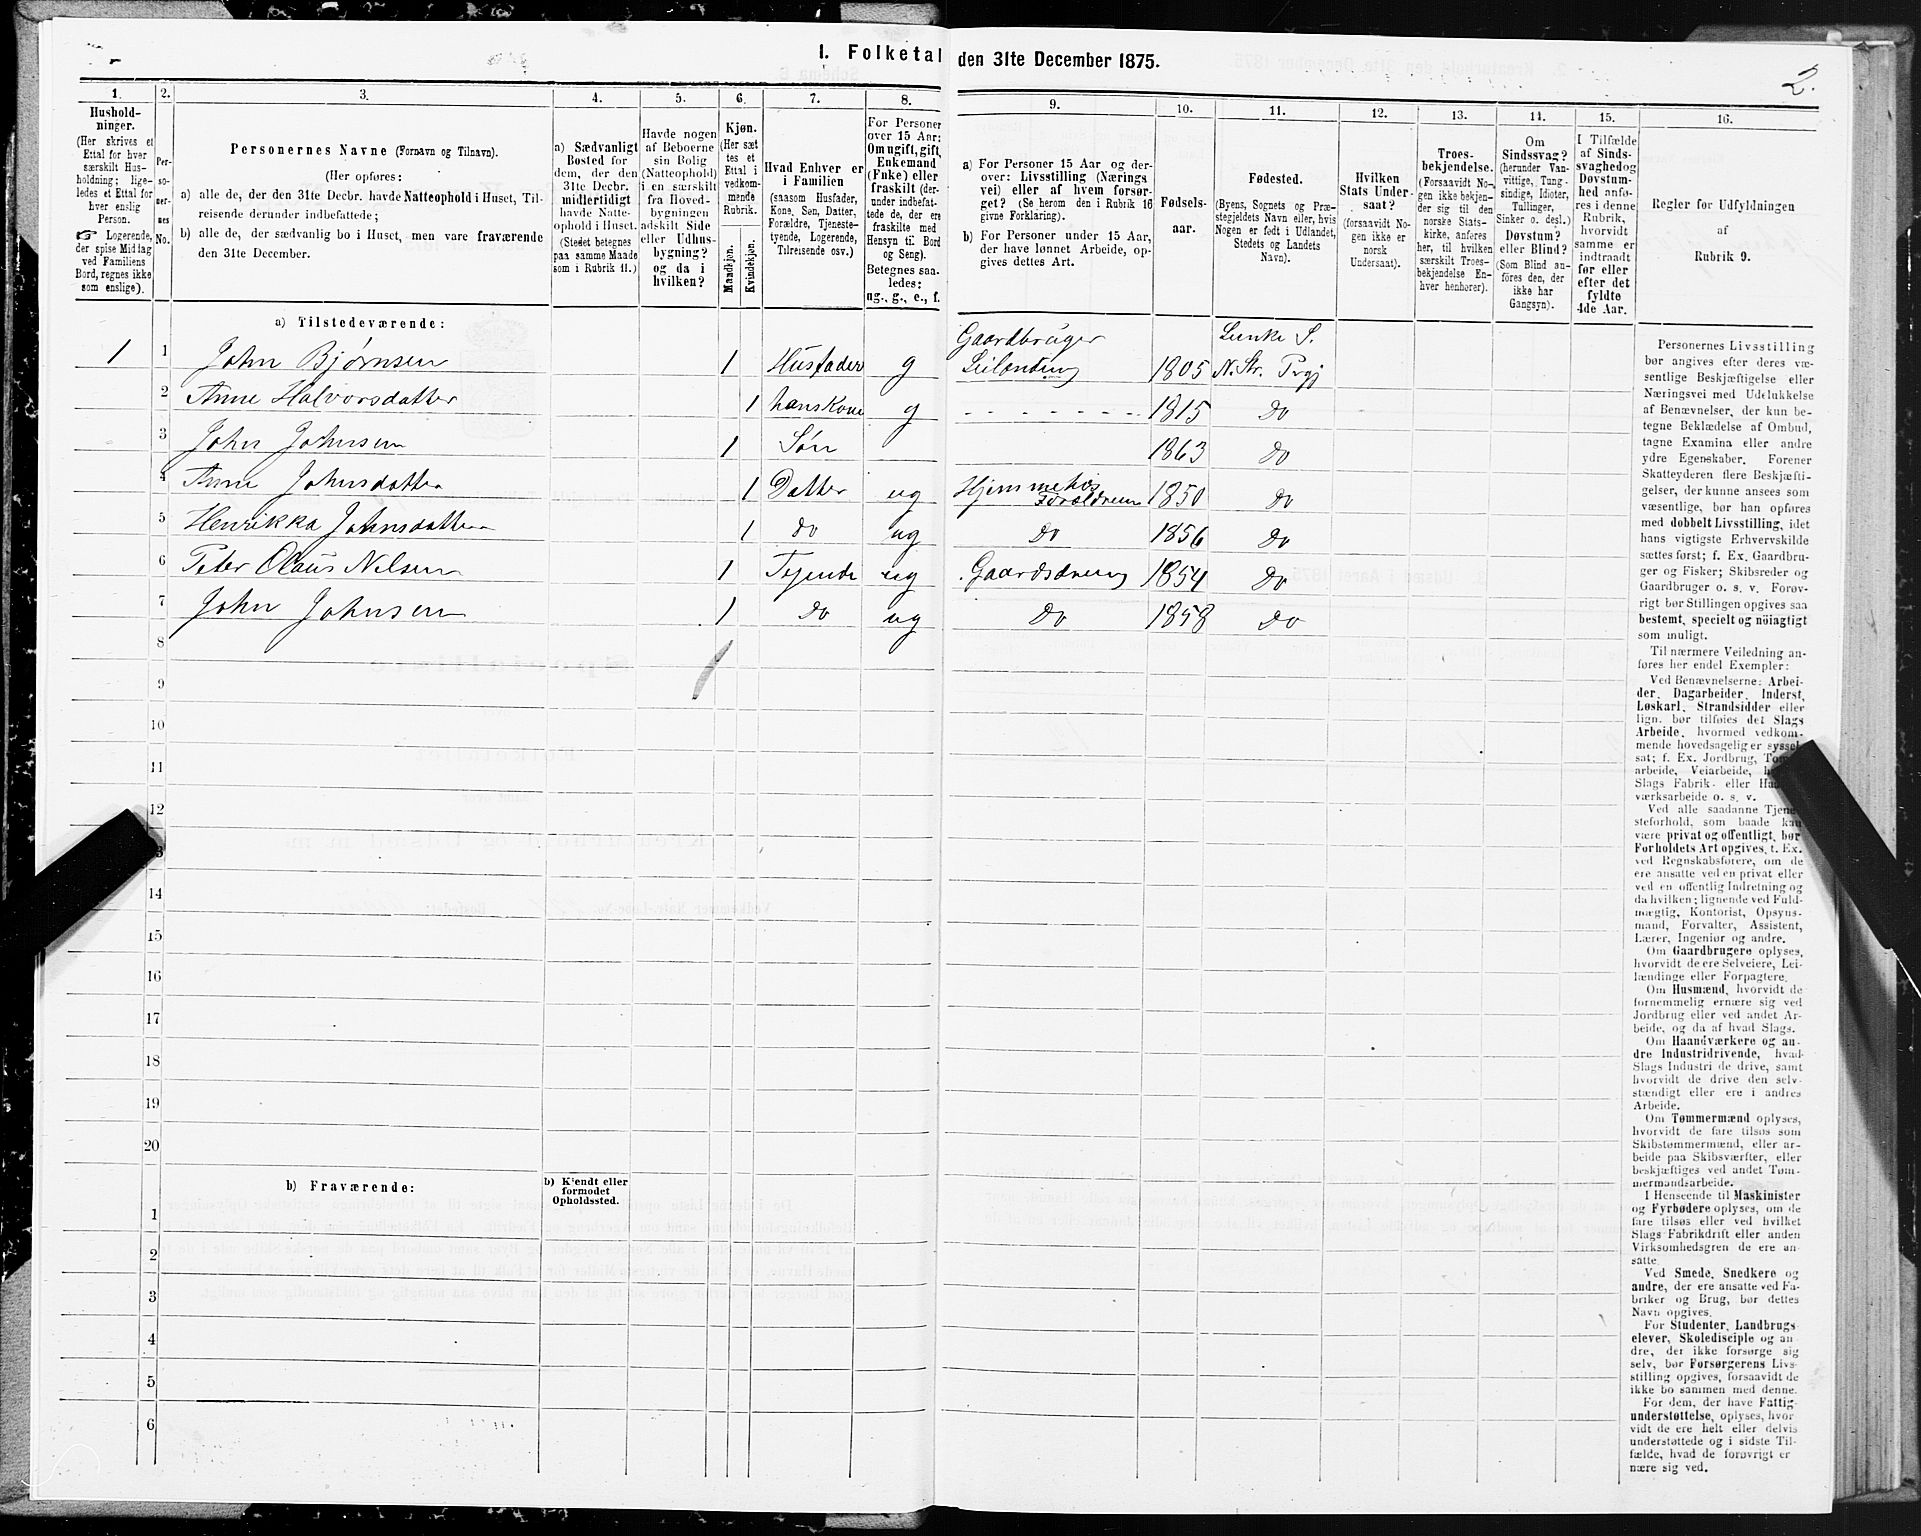 I. Folketal den 31te December 1875.
2.
1.
Hushold-
ninger.
(Her skrives et
Ettal for hver
særskilt Hus-
holdning; lige-
ledes et Ettal for
hver enslig
Person.
☞ Logerende,
der spise Middag
ved Familiens
Bord, regnes ikke
som enslige).
2.
Per-
so-
ner-
nes
No.
3.
Personernes Navne (Fornavn og Tilnavn).
(Her opføres:
a) alle de, der den 31te Decbr. havde Natteophold i Huset, Til-
reisende derunder indbefattede;
b) alle de, der sædvanlig bo i Huset, men vare fraværende
den 31te December.
4.
a) Sædvanligt
Bosted for
dem, der den
31te Decbr.
midlertidigt
havde Natte-
ophold i Huset.
(Stedet betegnes
paa samme Maade
som i Rubrik 11.)
5.
Havde nogen
af Beboerne
sin Bolig
(Natteophold)
i en særskilt
fra Hoved-
bygningen
adskilt Side
eller Udhus-
bygning?
og da i
hvilken?
6.
Kjøn.
(Her sæt
tes et
Ettal i
vedkom-
mende
Rubrik.
Mandkjøn.
Kvindekjøn.
7.
Hvad Enhver er
i Familien
(saasom Husfader,
Kone, Søn, Datter,
Forældre, Tjeneste-
tyende, Logerende,
Tilreisende osv.)
8.
For Personer
over 15 Aar:
Om ugift, gift,
Enkemand
(Enke) eller
fraskilt (der-
under indbefat-
tede de, der ere
fraskilte med
Hensyn til Bord
og Seng).
Betegnes saa-
ledes:
ug., g., e., f.
9.
a) For Personer 15 Aar og der-
over: Livsstilling (Nærings
vei) eller af hvem forsør-
get? (Se herom den i Rubrik 16
givne Forklaring).
b) For Personer under 15 Aar,
der have lønnet Arbeide, op-
gives dettes Art.
10.
Fødsels-
aar.
11.
Fødested.
(Byens, Sognets og Præ-
stegjeldets Navn eller, hvis
Nogen er født i Udlandet,
Stedets og Landets
Navn).
12.
Hvilken
Stats Under-
saat?
(forsaavidt No-
gen ikke er
norsk
Undersaat).
13.
Troes-
bekjendelse.
(Forsaavidt No-
gen ikke bekjen-
der sig til den
norske Stats-
kirke, anføres
her, til hvilken
særskilt Troes-
bekjendelse En-
hver henhører).
14.
Om
Sindssvag?
(herunder Van-
vittige, Tung-
sindige, Idioter,
Tullinger,
Sinker o. desl.)
Døvstum?
eller Blind?
(Som Blind an-
føres den, der
ikke har
Gangsyn).
15.
I Tilfælde
af Sinds-
svaghed og
Døvstum-
hed anfø-
res i denne
Rubrik,
hvorvidt
samme er
indtraadt
før eller
efter det
fyldte
4de Aar.
16.
Regler for Udfyldningen
af
Rubrik 9.
a) Tilstedeværende:
1 1 John Bjørnsen 1 Husfader g Gaardbruger Leilænding 1805 N. Str. Prgj
2 Anne Halvorsdatter 1 hans Kone g - - - - - - - - 1815 Do
3 John Johnsen 1 Søn 1863 Do
4 Anne Johnsdatter 1 Datter ug Hjemme hos Forældrene 1850 Do
5 Henrikka Johnsdatter 1 do ug Do 1856 Do
6 Peter Olaus Nilsen 1 ug Gaardsdreng 1854 Do
7 John Johnsen 1 Do ug Do 1858 Do
8
9
10
11
12
14
15
16
17
18
19
20
b) Fraværende:
b) Kjendt eller
formodet
Opholdssted.
1
2
3
4
5
6
Personernes Livsstilling
bør angives efter deres væ-
sentlige Beskjæftigelse eller
Næringsvei med Udelukkelse
af Benævnelser, der kun be-
tegne Beklædelse af Ombud,
tagne Examina eller andre
ydre Egenskaber. Forener
Skatteyderen flere Beskjæfti-
gelser, der kunne ansees som
væsentlige, bør han opføres
med dobbelt Livsstilling, idet
hans vigtigste Erhvervskilde
sættes først; f. Ex. Gaardbru-
ger og Fisker; Skibsreder og
Gaardbruger o. s. v. Forøv-
rigt bør Stillingen opgives saa
bestemt, specielt og nöiagtigt
som muligt.
Til nærmere Veiledning an-
føres her endel Exempler:
Ved Benævnelserne: Arbei-
der, Dagarbeider, Inderst,
Løskarl, Strandsidder eller
lign. bør tilføies det Slags
Arbeide, hvormed vedkom-
mende hovedsagelig er syssel-
sat; f. Ex. Jordbrug,
arbeide, Veiarbeide,
Slags Fabrik- eller
værksarbeide o. s. v.
Ved alle saadanne Tjene-
steforhold, som baade kan
være privat og offentligt, bør
Forholdets Art opgives, t. Ex.
ved Regnskabsførere, om de
ere ansatte ved en privat eller
ved en offentlig Indretning og
da hvilken; lignende ved Fuld-
mægtig, Kontorist, Opsyns-
mand, Forvalter, Assistent,
Lærer, Ingeniør og andre.
Om Gaardbrugere oplyses,
hvorvidt de ere Selveiere, Lei-
lændinge eller Forpagtere.
Om Husmænd, hvorvidt de
fornemmelig ernære sig ved
Jordbrug eller ved andet Ar-
beide, og da af hvad Slags.
Om Haandværkere og an-
dre Industridrivende, hvad
Slags Industri de drive, samt
hvorvidt de drive den selv-
stændigt eller ere i andres
Arbeide.
Om Tømmermænd oplyses,
hvorvidt de fare tilsøs som
Skibstømmermænd, eller ar-
beide paa Skibsværfter, eller
beskjæftiges ved andet Tøm-
mermandsarbeide.
I Henseende til Maskinister
og Fyrbødere oplyses, om de
fare tilsøs eller ved hvilket
Slags Fabrikdrift eller anden
Virksomhedsgren de ere an-
satte.
Ved Smede, Snedkere og
andre, der ere ansatte ved Fa-
briker og Brug, bør dettes
Navn opgives.
For Studenter, Landbrugs-
elever, Skoledisciple og an
dre, der ikke forsørge sig
selv, bør Forsørgerens Livs-
stilling opgives, forsaavidt de
ikke bo sammen med denne.
For dem, der have Fattig-
understøttelse, oplyses, hvor
vidt de ere helt eller delvis
understøttede og i sidste Til-
fælde, hvad de forøvrigt er
nære sig ved.